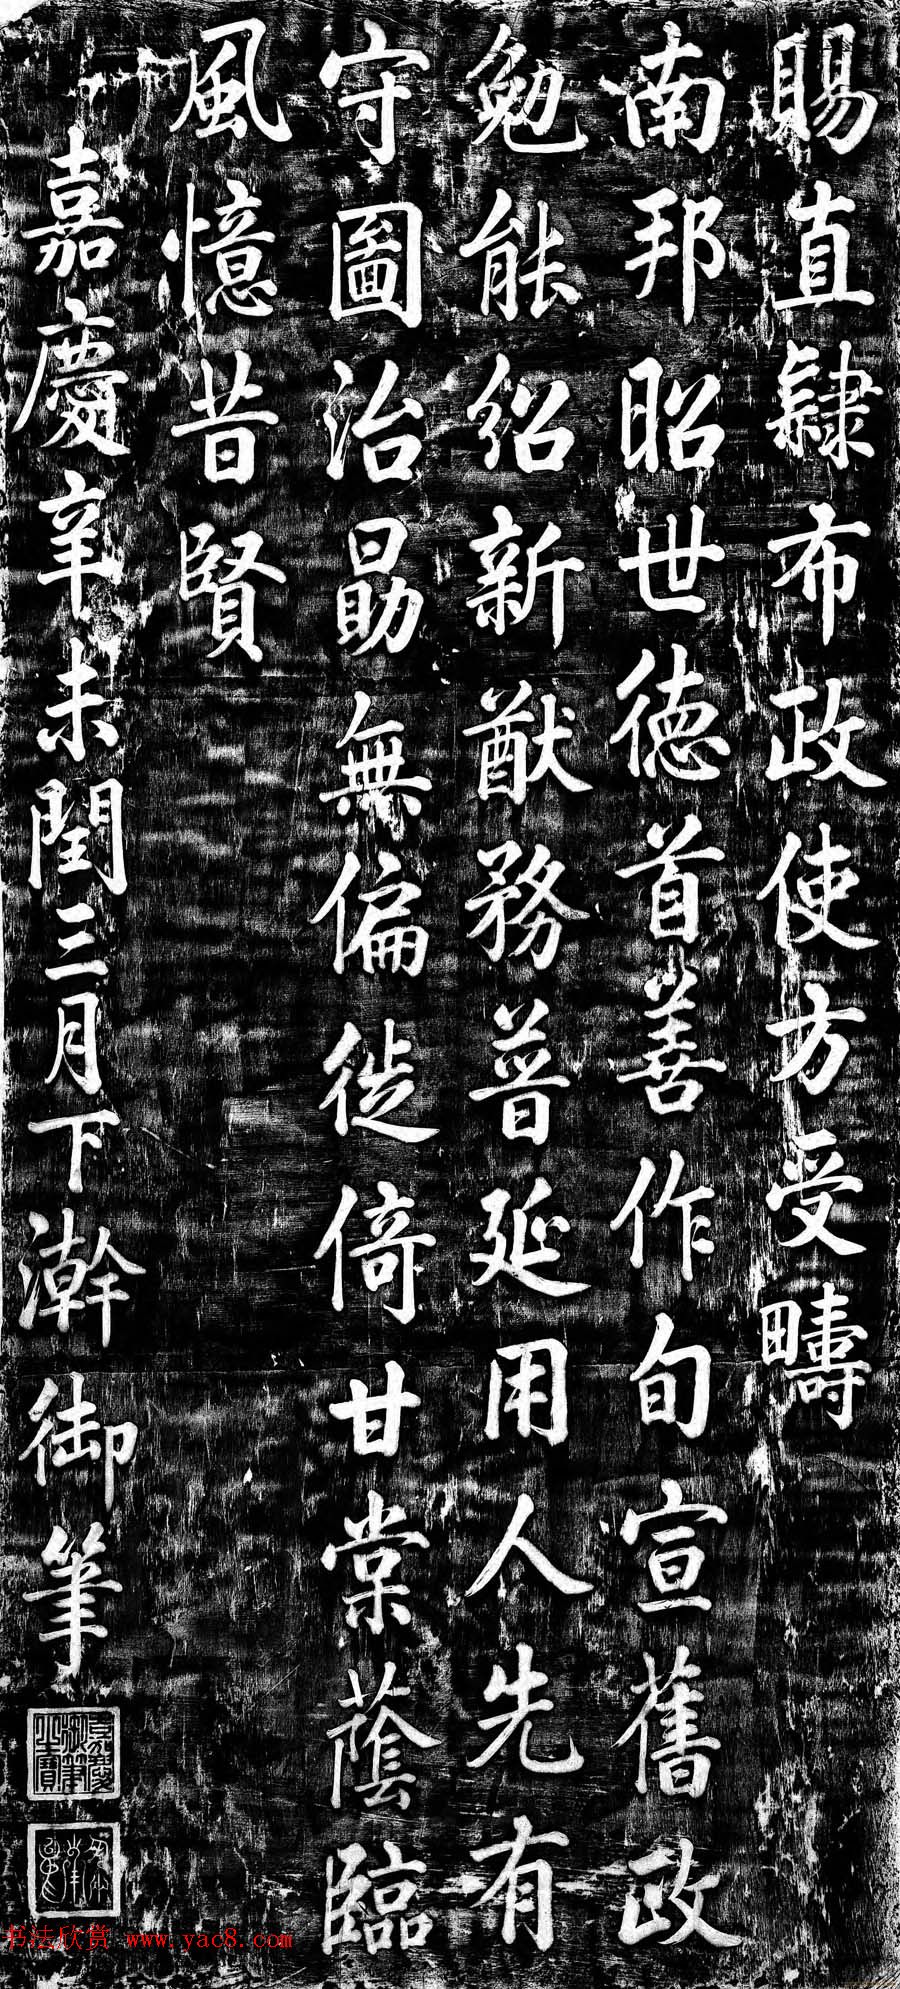 賜直隸布政使方受疇
南邦昭世德首善作旬宣舊政
勉能紹新猷務普延用人先有
守圖治勗無偏徙倚甘棠蔭臨
風憶昔賢
嘉慶辛未閏三月下澣御筆
嘉慶御筆之寶
书法欣赏 www.yac8.com